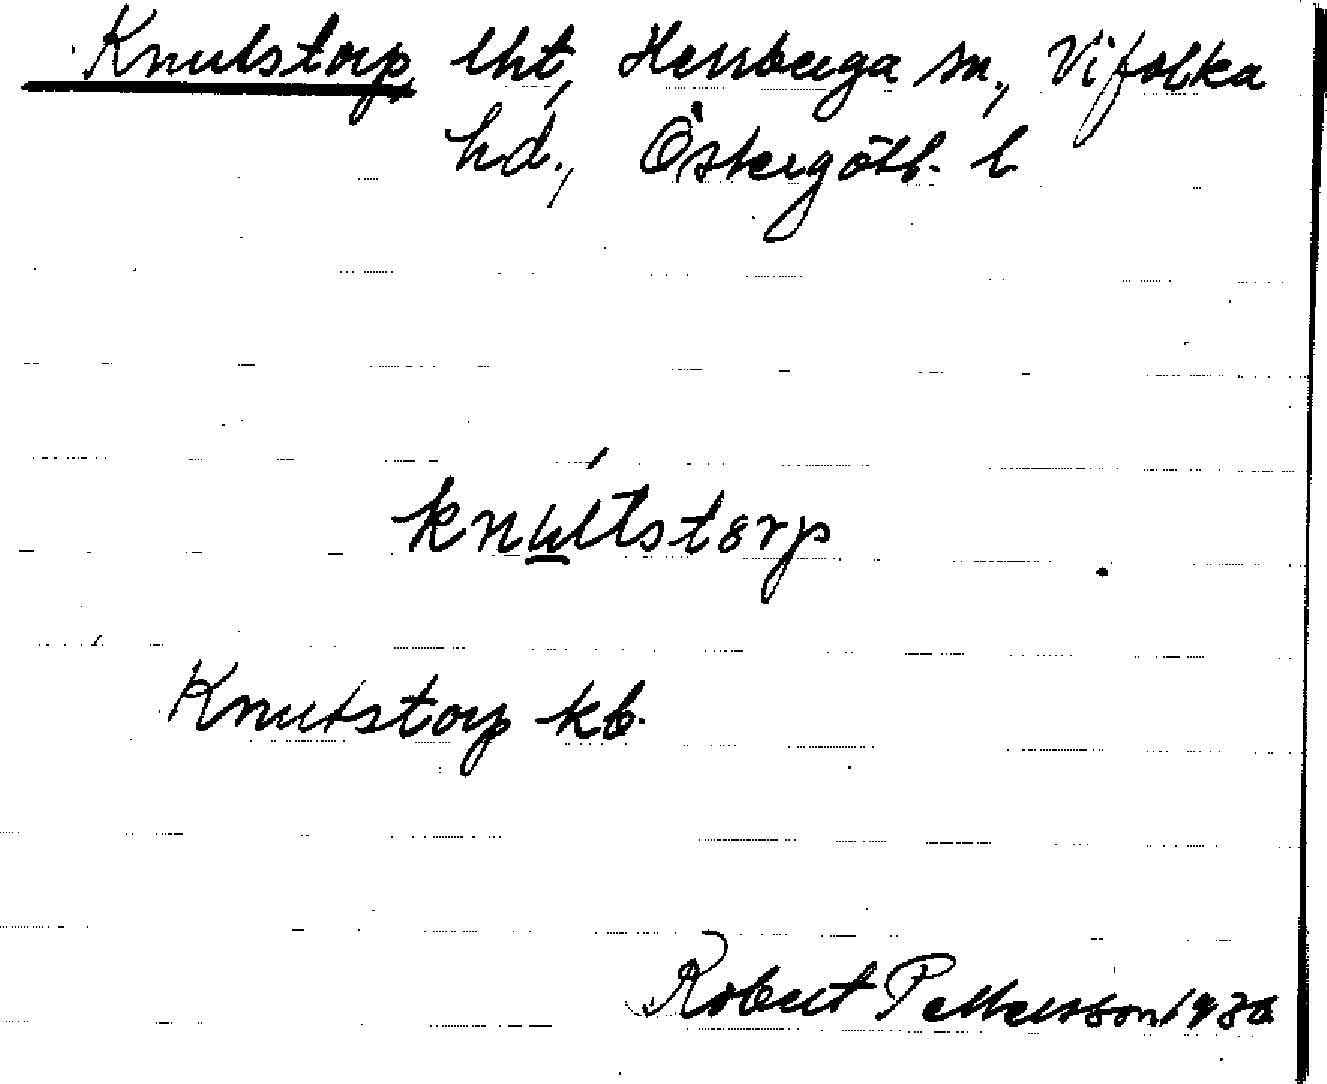 Knutstorp, lht, Herrberga sn, Vifolka
hd., Östergötl. l
knu̲ttstorp
Knutstorp kb.
Robert Pettersson